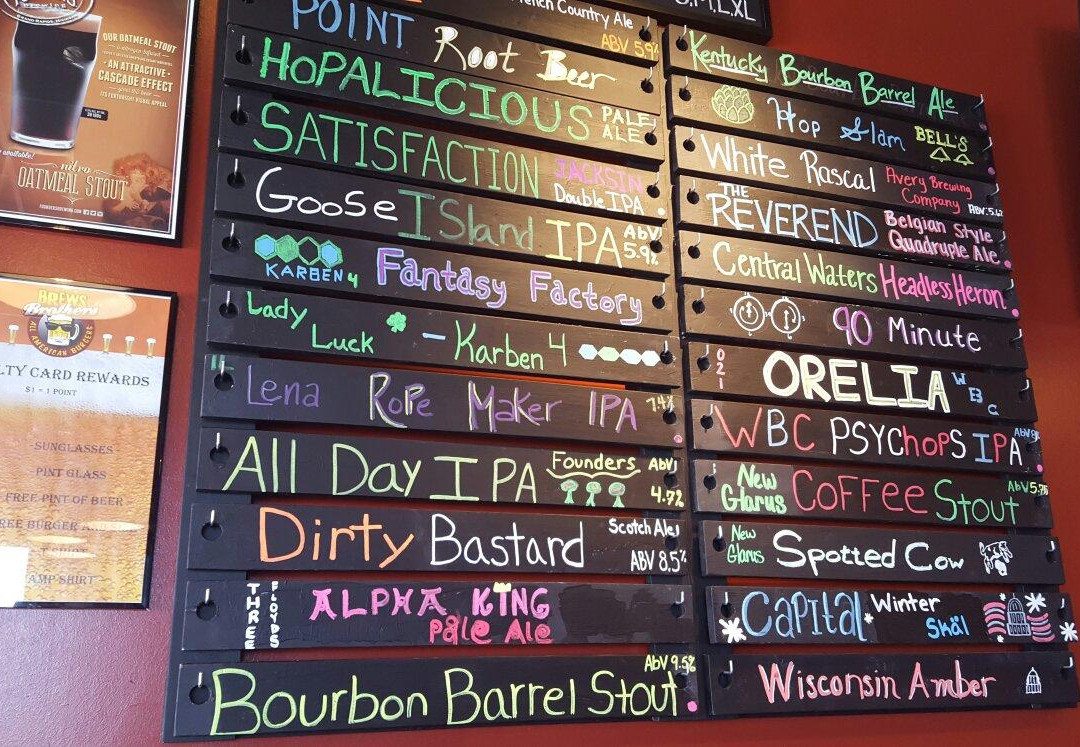 OUR OATMEAL STOUT
AN ATTRACTIVE
CASCADE EFFECT
available!
nitro
OATMEAL STOUT
BREWS
Brothers
ALL AMERICAN BURGERS
LTY CARD REWARDS
$1 = 1 POINT
-SUNGLASSES-
PINT GLASS
FREE PINT OF BEER
REE BURGER
T-SHIRT
AMP SHIRT
French Country Ale
ABV 5.9%
POINT Root Beer
HOPALICIOUS PALE
ALE
SATISFACTION JACKSIN
Double IPA
Goose Island IPA AbV
5.9%
KARBEN 4 Fantasy Factory
Lady
Luck - Karben 4
Lena Rope Maker IPA 7.4%
All Day IPA Founders AbV
4.7%
Dirty Bastard Scotch Ale
ABV 8.5%
THREE FLOYDS ALPHA KING
Pale Ale
Bourbon Barrel Stout AbV 9.5%
S,M,L,XL
Kentucky Bourbon Barrel Ale
Hop Slam BELL'S
White Rascal Avery Brewing
Company ABV:5.6%
THE
REVEREND Belgian Style
Quadruple Ale
Central Waters Headless Heron
90 Minute
O21 ORELIA WBC
WBC PSYchopS IPA
New
Glarus COFFee Stout AbV 5.7%
New
Glarus Spotted Cow
Capital Winter
Skål
Wisconsin Amber